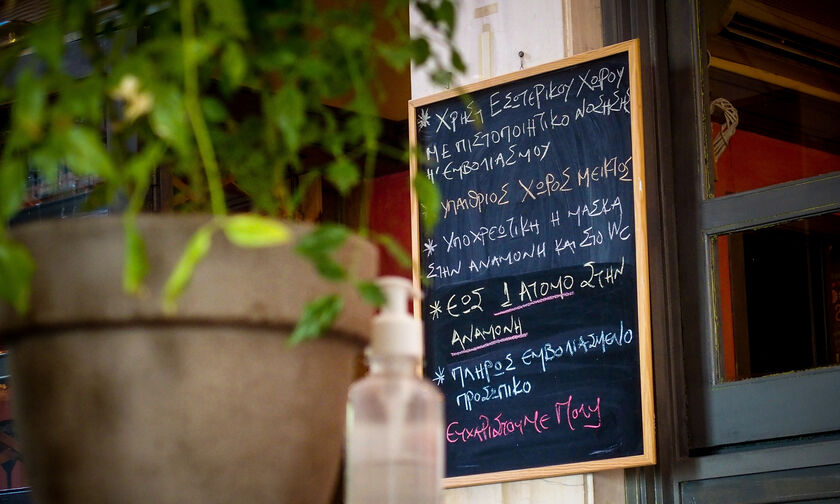 * ΧΡΗΣΗ ΕΣΩΤΕΡΙΚΟΥ ΧΩΡΟΥ
ΜΕ ΠΙΣΤΟΠΟΙΗΤΙΚΟ ΝΟΣΗΣΗΣ
Η' ΕΜΒΟΛΙΑΣΜΟΥ
ΥΠΑΙΘΡΙΟΣ ΧΩΡΟΣ ΜΕΙΚΤΟΣ
* ΥΠΟΧΡΕΩΤΙΚΗ Η ΜΑΣΚΑ
ΣΤΗΝ ΑΝΑΜΟΝΗ ΚΑΙ ΣΤΟ WC
* ΕΩΣ 1 ΑΤΟΜΟ ΣΤΗΝ
ΑΝΑΜΟΝΗ
* ΠΛΗΡΩΣ ΕΜΒΟΛΙΑΣΜΕΝΟ
ΠΡΟΣΩΠΙΚΟ
ΕΥΧΑΡΙΣΤΟΥΜΕ ΠΟΛΥ